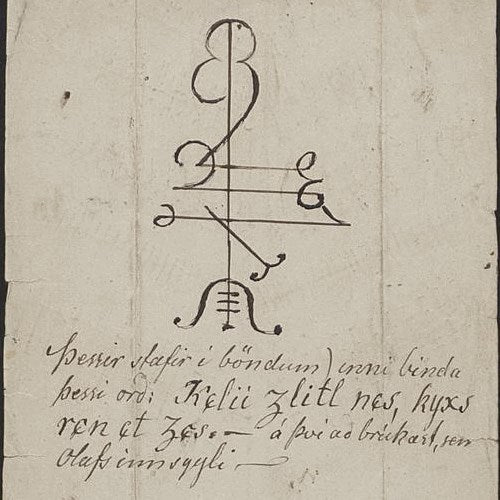 Þessir stafir i böndum) inni binda
þessi orð: Kelii zlitl nes, kyxs
ren et zes. — á því að brúkast, sem
Olafs innsygli —